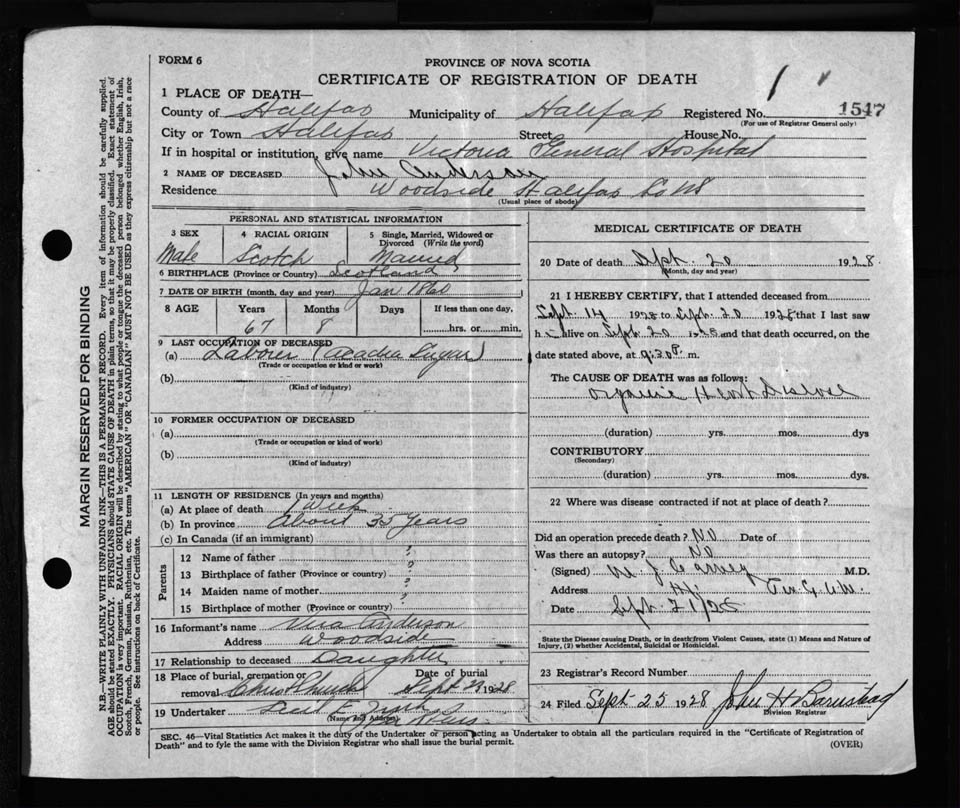 FORM 6
PROVINCE OF NOVA SCOTIA
CERTIFICATE OF REGISTRATION OF DEATH
1 PLACE OF DEATH—
County of Halifax Municipality of Halifax Registered No. 1547
(For use of Registrar General only)
City or Town Halifax Street House No.
If in hospital or institution, give name Victoria General Hospital
2 NAME OF DECEASED John Anderson
Residence Woodside Halifax Co NS
(Usual place of abode)
PERSONAL AND STATISTICAL INFORMATION
3 SEX 4 RACIAL ORIGIN 5 Single, Married, Widowed or Divorced (Write the word)
Male Scotch Married
6 BIRTHPLACE (Province or Country) Scotland
7 DATE OF BIRTH (month, day and year) Jan 1860
8 AGE Years Months Days If less than one day,
67 8 hrs. or min.
9 LAST OCCUPATION OF DECEASED
(a) Laborer (Acadia Sugar)
(Trade or occupation or kind of work)
(b)
(Kind of industry)
10 FORMER OCCUPATION OF DECEASED
(a)
(Trade or occupation or kind of work)
(b)
(Kind of industry)
11 LENGTH OF RESIDENCE (In years and months)
(a) At place of death 1 Week
(b) In province About 35 Years
(c) In Canada (if an immigrant)
Parents
12 Name of father ?
13 Birthplace of father (Province or country) ?
14 Maiden name of mother ?
15 Birthplace of mother (Province or country) ?
16 Informant's name Vera Anderson
Address Woodside
17 Relationship to deceased Daughter
18 Place of burial, cremation or removal Christ Church Date of burial Sept 1928
19 Undertaker
(Name and Address)
MEDICAL CERTIFICATE OF DEATH
20 Date of death Sept. 20 1928.
(Month, day and year)
21 I HEREBY CERTIFY, that I attended deceased from
Sept. 14 1928 to Sept. 20 1928 that I last saw
h alive on Sept. 20 1928 and that death occurred, on
date stated above, at 9:30 P. m.
The CAUSE OF DEATH was as follows:
Organic Heart Disease
(duration) yrs. mos. dys
CONTRIBUTORY
(Secondary)
(duration) yrs. mos. dys.
22 Where was disease contracted if not at place of death?
Did an operation precede death? No Date of
Was there an autopsy? No
(Signed) M.D.
Address
Date Sept. 21/28
State the Disease causing Death, or in death from Violent Causes, state (1) Means and Nature of
Injury, (2) whether Accidental, Suicidal or Homicidal.
23 Registrar's Record Number
24 Filed Sept 25 1928 John H Barnstead
Division Registrar
SEC. 46—Vital Statistics Act makes it the duty of the Undertaker or person acting as Undertaker to obtain all the particulars required in the "Certificate of Registration of
Death" and to fyle the same with the Division Registrar who shall issue the burial permit.
(OVER)
MARGIN RESERVED FOR BINDING
N.B.—WRITE PLAINLY WITH UNFADING INK—THIS IS A PERMANENT RECORD. Every item of information should be carefully supplied.
AGE should be stated EXACTLY. PHYSICIANS should STATE CAUSE OF DEATH in plain terms, so that it may be properly classified. Exact statement of
OCCUPATION is very important. RACIAL ORIGIN will be described by stating to what people or tongue the deceased person belonged whether English, Irish,
Scotch, French, German, Russian, Ruthenian, etc. The terms "AMERICAN" or "CANADIAN" MUST NOT BE USED as they express citizenship but not a race
or people. See instructions on back of Certificate.